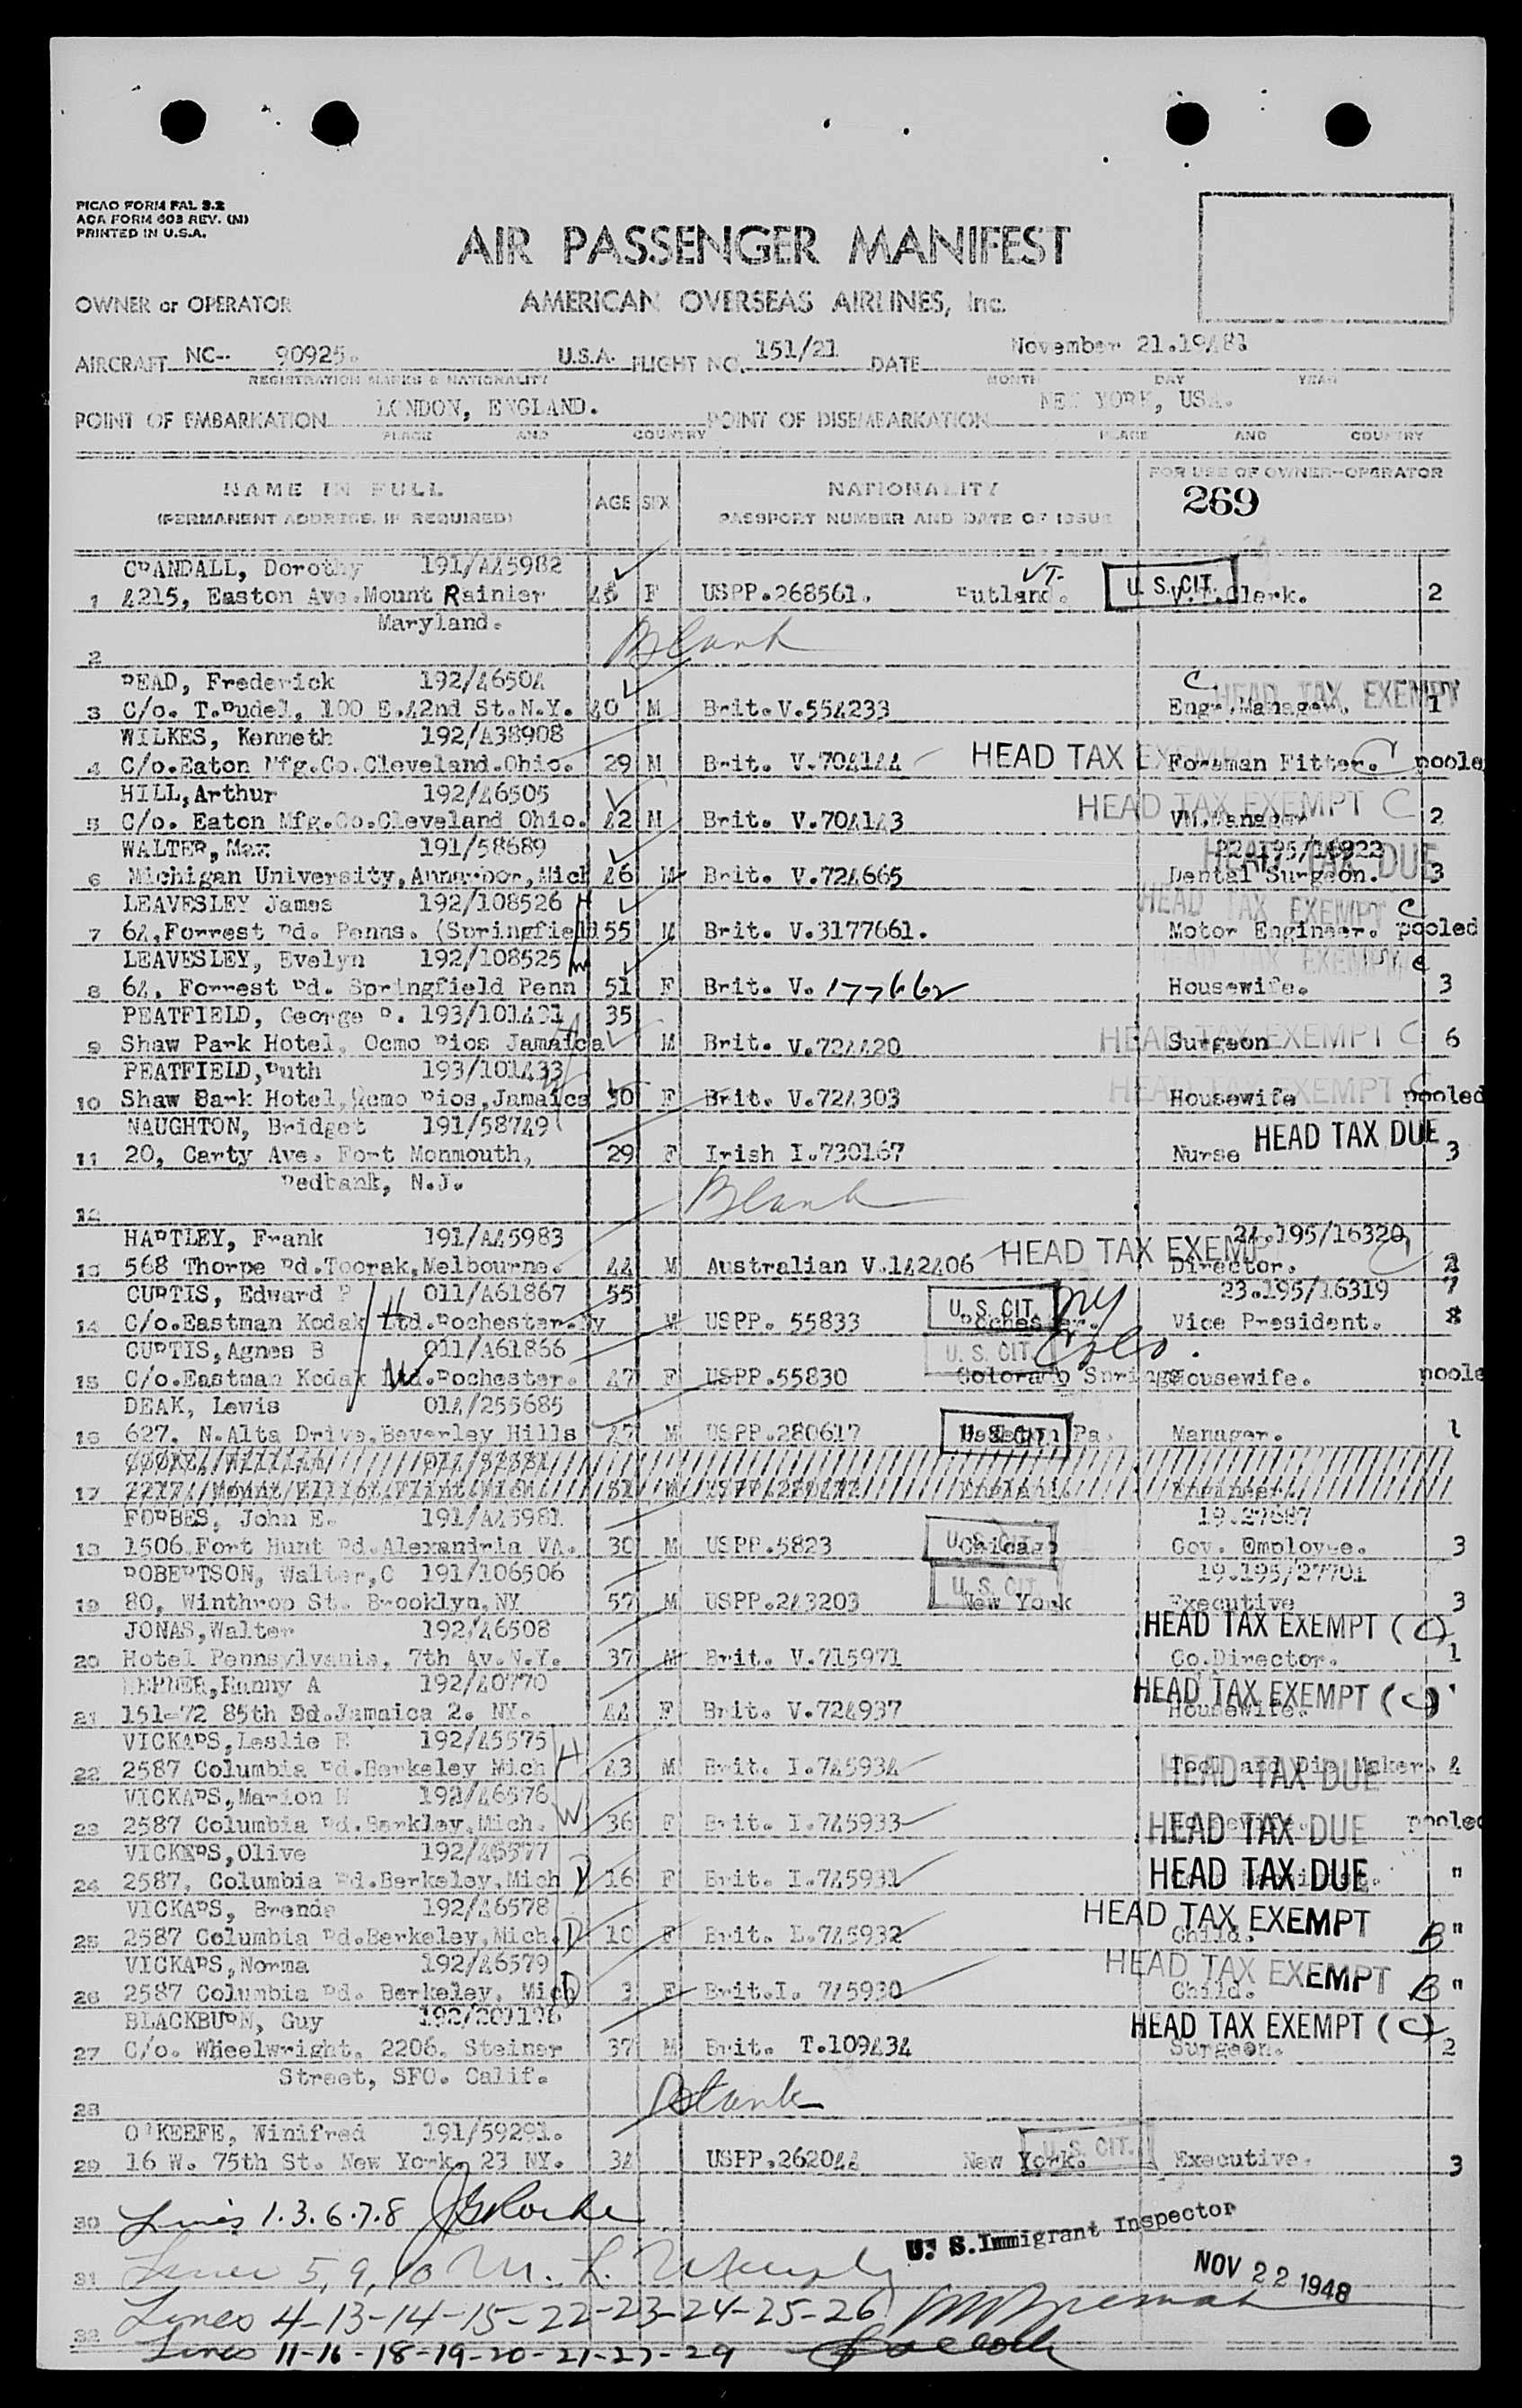 PICAO FORM FAL 3.2
ACA FORM 603 REV. (N)
PRINTED IN U.S.A.
AIR PASSENGER MANIFEST
OWNER or OPERATOR AMERICAN OVERSEAS AIRLINES, Inc.
AIRCRAFT NC-- 90925. U.S.A. FLIGHT NO. 151/21 DATE November 21.1948
REGISTRATION MARKS & NATIONALITY MONTH DAY YEAR
POINT OF EMBARKATION LONDON, ENGLAND. POINT OF DISEMBARKATION NEW YORK, USA.
PLACE AND COUNTRY PLACE AND COUNTRY
NAME IN FULL AGE SEX NATIONALITY FOR USE OF OWNER-OPERATOR
(PERMANENT ADDRESS, IF REQUIRED) PASSPORT NUMBER AND DATE OF ISSUE 269
CRANDALL, Dorothy 191/445982
1 4215, Easton Ave.Mount Rainier 45 F USPP.268561. Rutland. VT. U. S. CIT. Clerk. 2
Maryland.
2 Blank
READ, Frederick 192/46504 C HEAD TAX EXEMPT
3 C/o. T.Rudel, 100 E.42nd St.N.Y. 40 M Brit.V.554233 Eng. Manager. 1
WILKES, Kenneth 192/438908
4 C/o.Eaton Mfg.Co.Cleveland.Ohio. 29 M Brit. V.704144 HEAD TAX EXEMPT Foreman Fitter. C poole
HILL,Arthur 192/46505 HEAD TAX EXEMPT C
5 C/o. Eaton Mfg.Co.Cleveland Ohio. 42 M Brit. V.704143 Manager 2
WALTER, Max 191/58689 22.195/16322 HEAD TAX DUE
6 Michigan University,Annarbor,Mich 46 M Brit. V.724665 Dental Surgeon. 3
LEAVESLEY James 192/108526 H HEAD TAX EXEMPT C
7 64,Forrest Rd. Penns. (Springfield 55 M Brit. V.3177661. Motor Engineer. pooled
LEAVESLEY, Evelyn 192/108525 W HEAD TAX EXEMPT C
8 64, Forrest Rd. Springfield Penn 51 F Brit. V. 177662 Housewife. 3
PEATFIELD, George R. 193/101431 35
9 Shaw Park Hotel, Ocmo Rios Jamaica H M Brit. V.724420 HEAD TAX EXEMPT C Surgeon 6
PEATFIELD,Ruth 193/101433 W
10 Shaw Bark Hotel,Ocmo Rios,Jamaica 30 F Brit. V.724303 HEAD TAX EXEMPT C Housewife pooled
NAUGHTON, Bridget 191/58749 HEAD TAX DUE
11 20, Carty Ave. Fort Monmouth, 29 F Irish I.730167 Nurse 3
Redbank, N.J.
12 Blank
HARTLEY, Frank 191/445983 24.195/16320
13 568 Thorpe Rd.Toorak,Melbourne. 44 M Australian V.142406 HEAD TAX EXEMPT C Director. 2
CURTIS, Edward P 011/461867 55 U. S. CIT. NY 23.195/16319 7
14 C/o.Eastman Kodak Ltd.Rochester.Ny H M USPP. 55833 Rochester. Vice President. 8
CURTIS,Agnes B 011/461866 U. S. CIT. Colo.
15 C/o.Eastman Kodak Ltd.Rochester. W 47 F USPP.55830 Colorado Springs Housewife. poole
DEAK, Lewis 014/255685
16 627, N.Alta Drive,Beverley Hills 47 M USPP.280617 U. S. CIT. Pa. Manager. 1
17 England. Engineer.
FORBES, John E. 191/445981 19.27687
18 1506 Fort Hunt Rd.Alexandria VA. 30 M USPP.5823 U. S. CIT. Chicago Gov. Employee. 3
ROBERTSON, Walter,C 191/106506 19.195/27701
19 80, Winthrop St. Brooklyn,NY 57 M USPP.243203 U. S. CIT. New York Executive 3
JONAS,Walter 192/46508 HEAD TAX EXEMPT (C)
20 Hotel Pennsylvania, 7th Av.N.Y. 37 M Brit. V.715971 Co.Director. 1
Hanny A 192/40770 HEAD TAX EXEMPT (C)
21 151-72 85th Rd.Jamaica 2. NY. 44 F Brit. V.724937 Housewife. "
VICKARS,Leslie 192/45575 H
22 2587 Columbia Rd.Berkeley Mich 43 M Brit. I.745934 HEAD TAX DUE Tool and Die Maker. 4
VICKARS,Marion 192/46576 W
23 2587 Columbia Rd.Berkley,Mich. 36 F Brit. I.745933 HEAD TAX DUE pooled
VICKERS,Olive 192/46577
24 2587, Columbia Rd.Berkeley,Mich D 16 F Brit. I.745931 HEAD TAX DUE "
VICKARS, Brenda 192/46578 HEAD TAX EXEMPT
25 2587 Columbia Rd.Berkeley,Mich. D 10 F Brit. I.745932 Child. B "
VICKARS,Norma 192/46579 HEAD TAX EXEMPT
26 2587 Columbia Rd. Berkeley, Mich D 3 F Brit.I. 745930 Child. B "
BLACKBURN, Guy 192/201176 HEAD TAX EXEMPT (C)
27 C/o. Wheelwright, 2206, Steiner 37 M Brit. T.109434 Surgeon. 2
Street, SFO. Calif.
28 Blank
O'KEEFE, Winifred 191/59291.
29 16 W. 75th St. New York. 23 NY. 34 USPP.262044 New York. U. S. CIT. Executive. 3
30 Lines 1.3.6.7.8
U. S. Immigrant Inspector
31 Lines 5, 9, 10 M. L. Murphy
NOV 22 1948
32 Lines 4-13-14-15-22-23-24-25-26
Lines 11-16-18-19-20-21-27-29